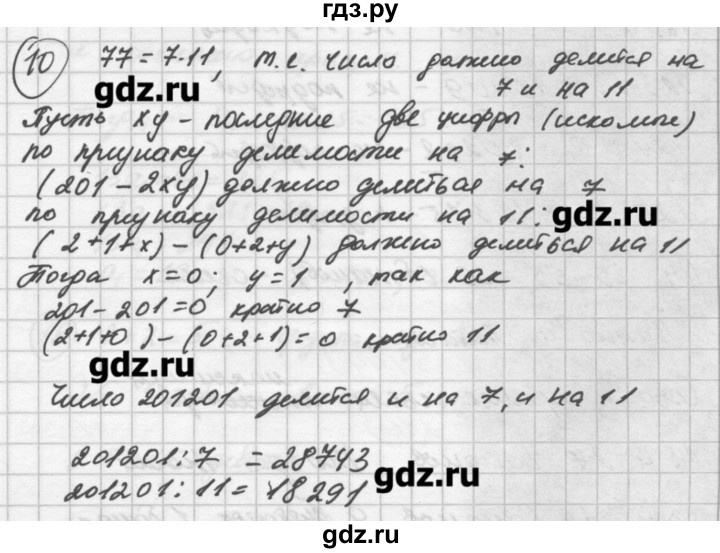 гдз.ру
10 77 = 7·11, т.е. число должно делится на
gdz.ru 7 и на 11
Пусть xy – последние две цифры (искомые)
по признаку делимости на 7:
(201 – 2xy) должно делиться на 7
по признаку делимости на 11: gdz.ru
(2+1+x) – (0+2+y) должно делиться на 11
Тогда x=0; y=1, так как
201 – 201 = 0 кратно 7
(2+1+0) – (0+2+1) = 0 кратно 11
gdz.ru
Число 201201 делится и на 7, и на 11
201201 : 7 = 28743
201201 : 11 = 18291 gdz.ru
gdz.ru